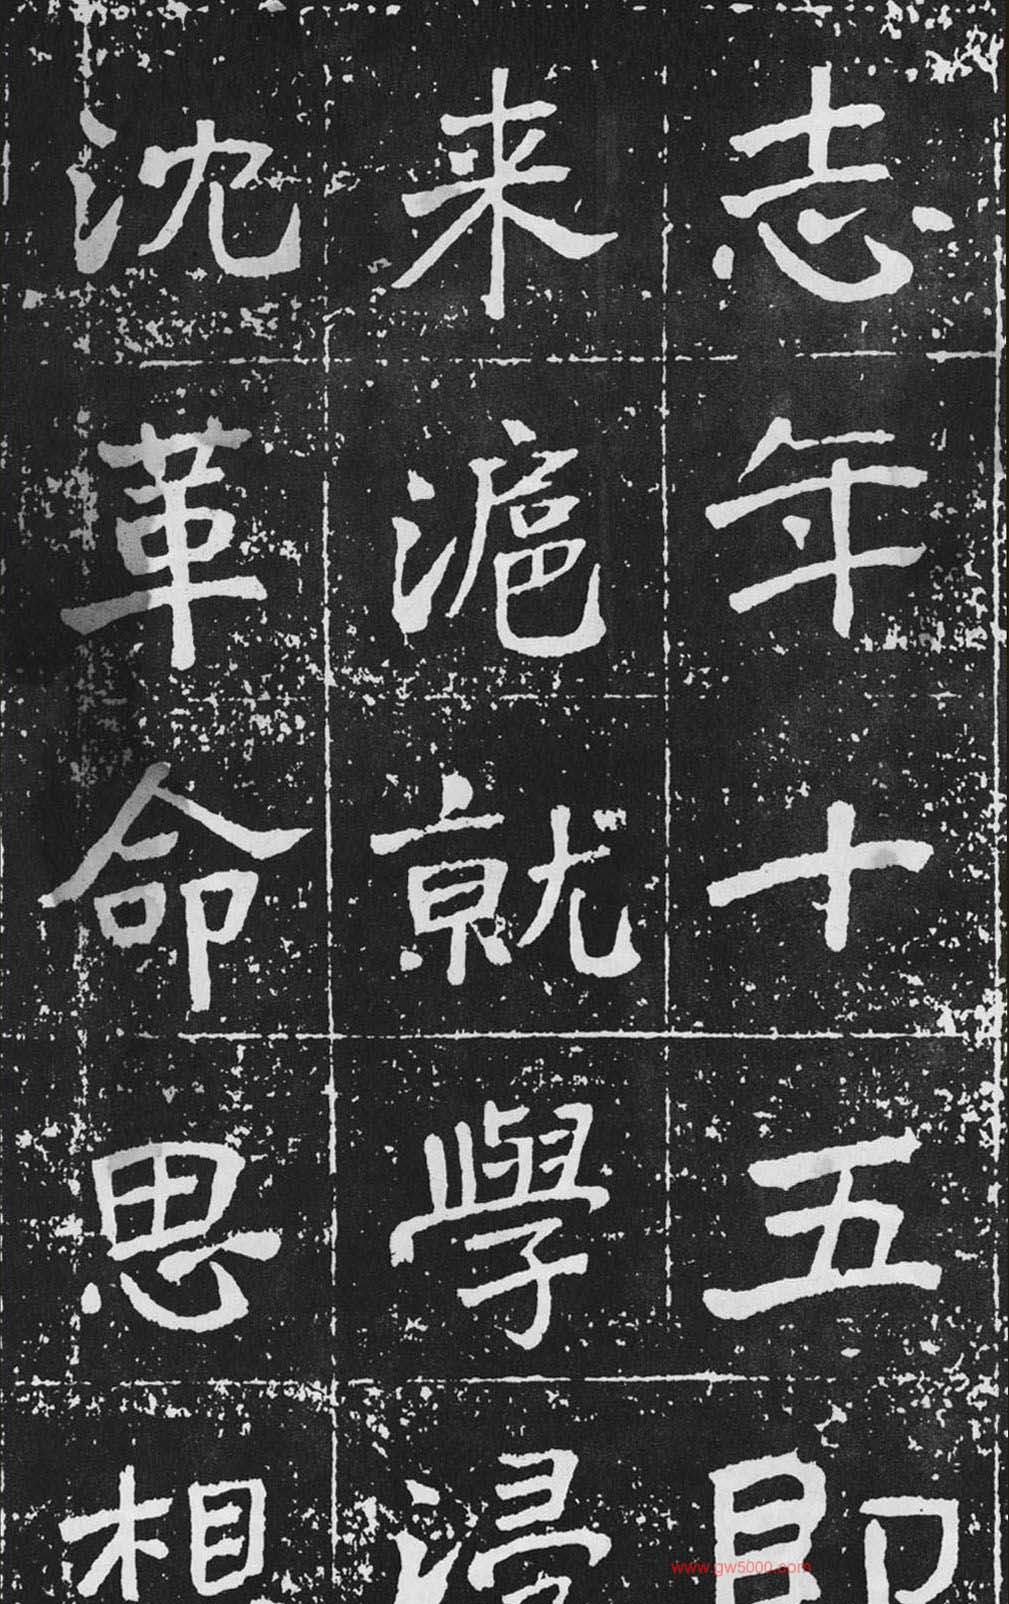 志年十五即
来滬就學浸
沈革命思相
www.gw5000.com